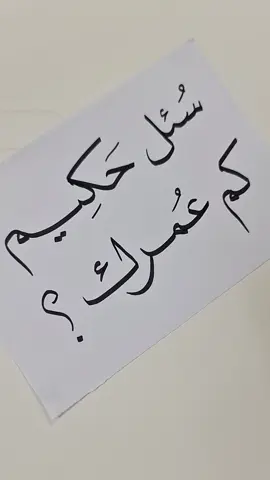 سُئل حَكِيم
كم عُمرك ؟